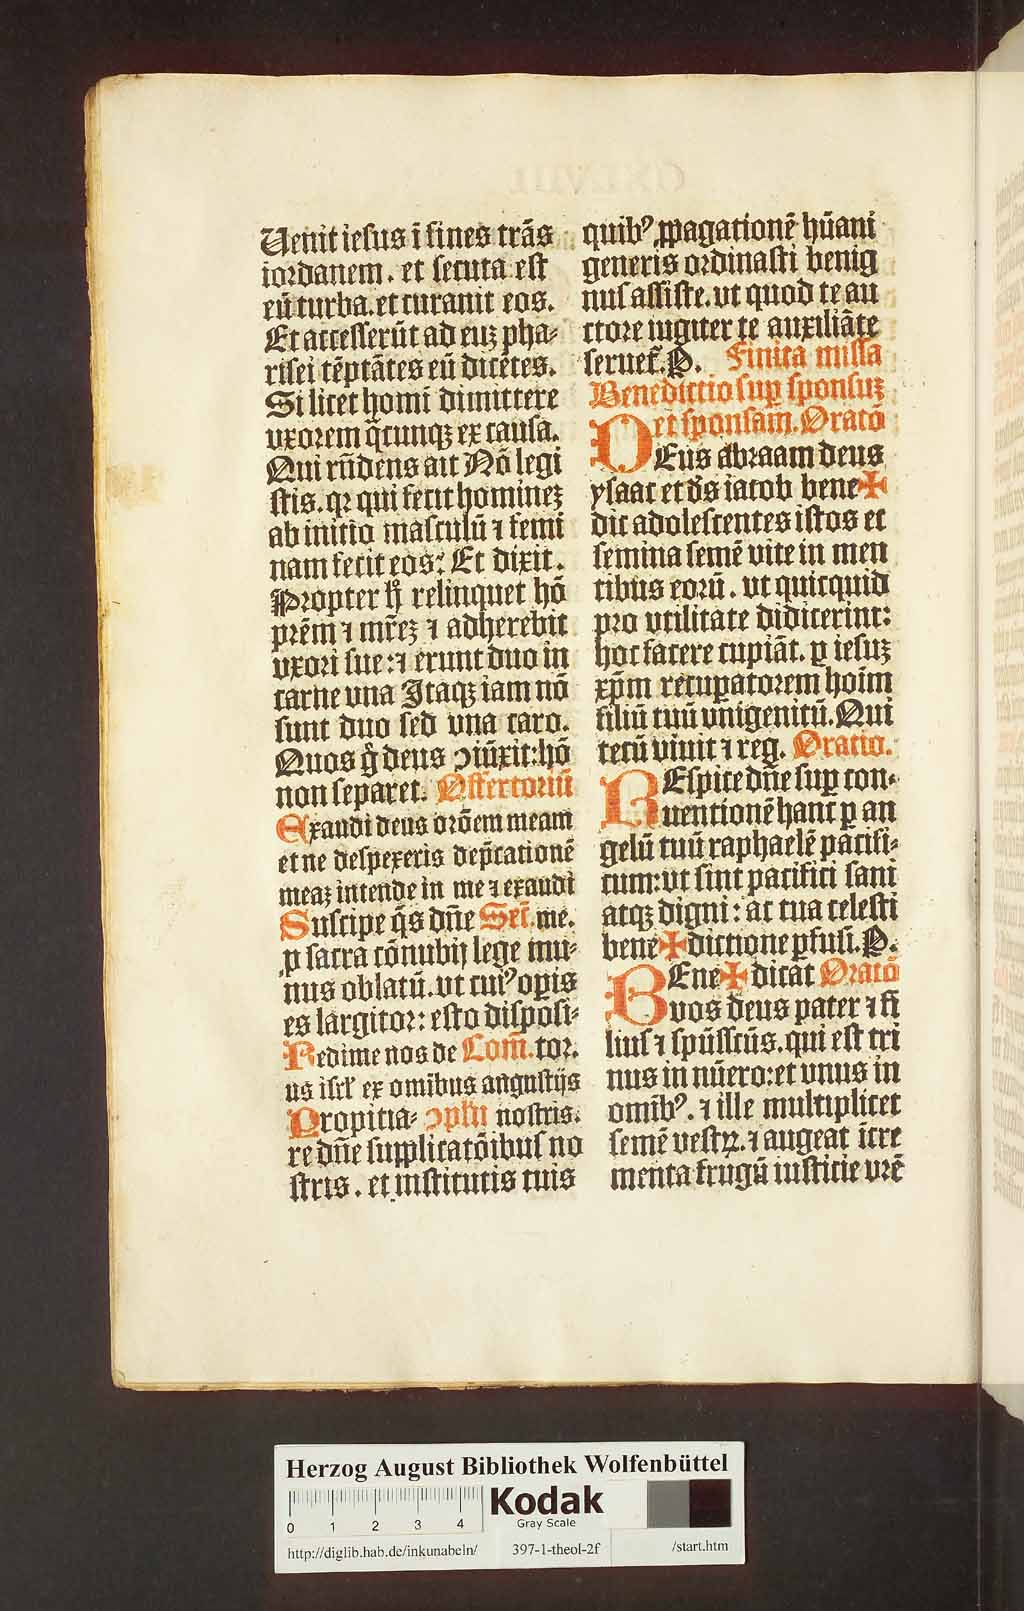 Uenit iesus ī fines trās
iordanem. et secuta est
eū turba. et curauit eos.
Et accesserūt ad euꝫ pha⸗
risei tēptātes eū dicētes.
Si licet homi dimittere
vxorem q̄cunqꝫ ex causa.
Qui rn̄dens ait Nō legi
stis. qꝛ qui fecit homineꝫ
ab initio masculū ⁊ femi
nam fecit eos? Et dixit.
Propter hͦ relinquet hō
prēm ⁊ mr̄eꝫ ⁊ adherebit
vxori sue: ⁊ erunt duo in
carne vna Itaqꝫ iam nō
sunt duo sed vna caro.
Quos gͦ deus ↄiūxit: hō
non separet. Offertoriū
Exaudi deus orōem meam
et ne despexeris dep̄cationē
meaꝫ intende in me ⁊ exaudi
Suscipe q̄s dn̄e Sec̄. me.
ꝓ sacra cōnubij lege mu⸗
nus oblatū. vt cuiꝰ opis
es largitor: esto disposi⸗
Redime nos de Com̄. tor.
us isrl̓ ex omībus angustijs
Propicia⸗ ↄplū nostris.
re dn̄e supplicatōibus no
stris. et institutis tuis
quibꝰ ꝓpagationē hūani
generis ordinasti benig
nus assiste. vt quod te au
ctore iugiter te auxiliāte
seruet̄. P. Finita missa
Benedictio suꝑ sponsuꝫ
et sponsam. Oratō
DEus abraam deus
ysaac et ds̄ iacob bene✠
dic adolescentes istos et
semina semē vite in men
tibus eorū. vt quicquid
pro vtilitate didicerint:
hoc facere cupiāt. ꝑ iesuꝫ
xp̄m recuꝑatorem hoīm
filiū tuū vnigenitū. Qui
tecū viuit ⁊ reg. Oratio.
REspice dn̄e suꝑ con⸗
uentionē hanc ꝑ an
gelū tuū raphaelē pacifi⸗
cum: vt sint pacifici sani
atqꝫ digni: ac tua celesti
bene✠dictione ꝑfusi. P.
BEne✠dicat Oratō
vos deus pater ⁊ fi
lius ⁊ spūssctūs. qui est tri
nus in nūero: et vnus in
omībꝰ. ⁊ ille multiplicet
semē vestrꝝ. ⁊ augeat īcre
menta frugū iusticie vr̄e
Herzog August Bibliothek Wolfenbüttel
0 1 2 3 4
Kodak
Gray Scale
http://diglib.hab.de/inkunabeln/ 397-1-theol-2f /start.htm